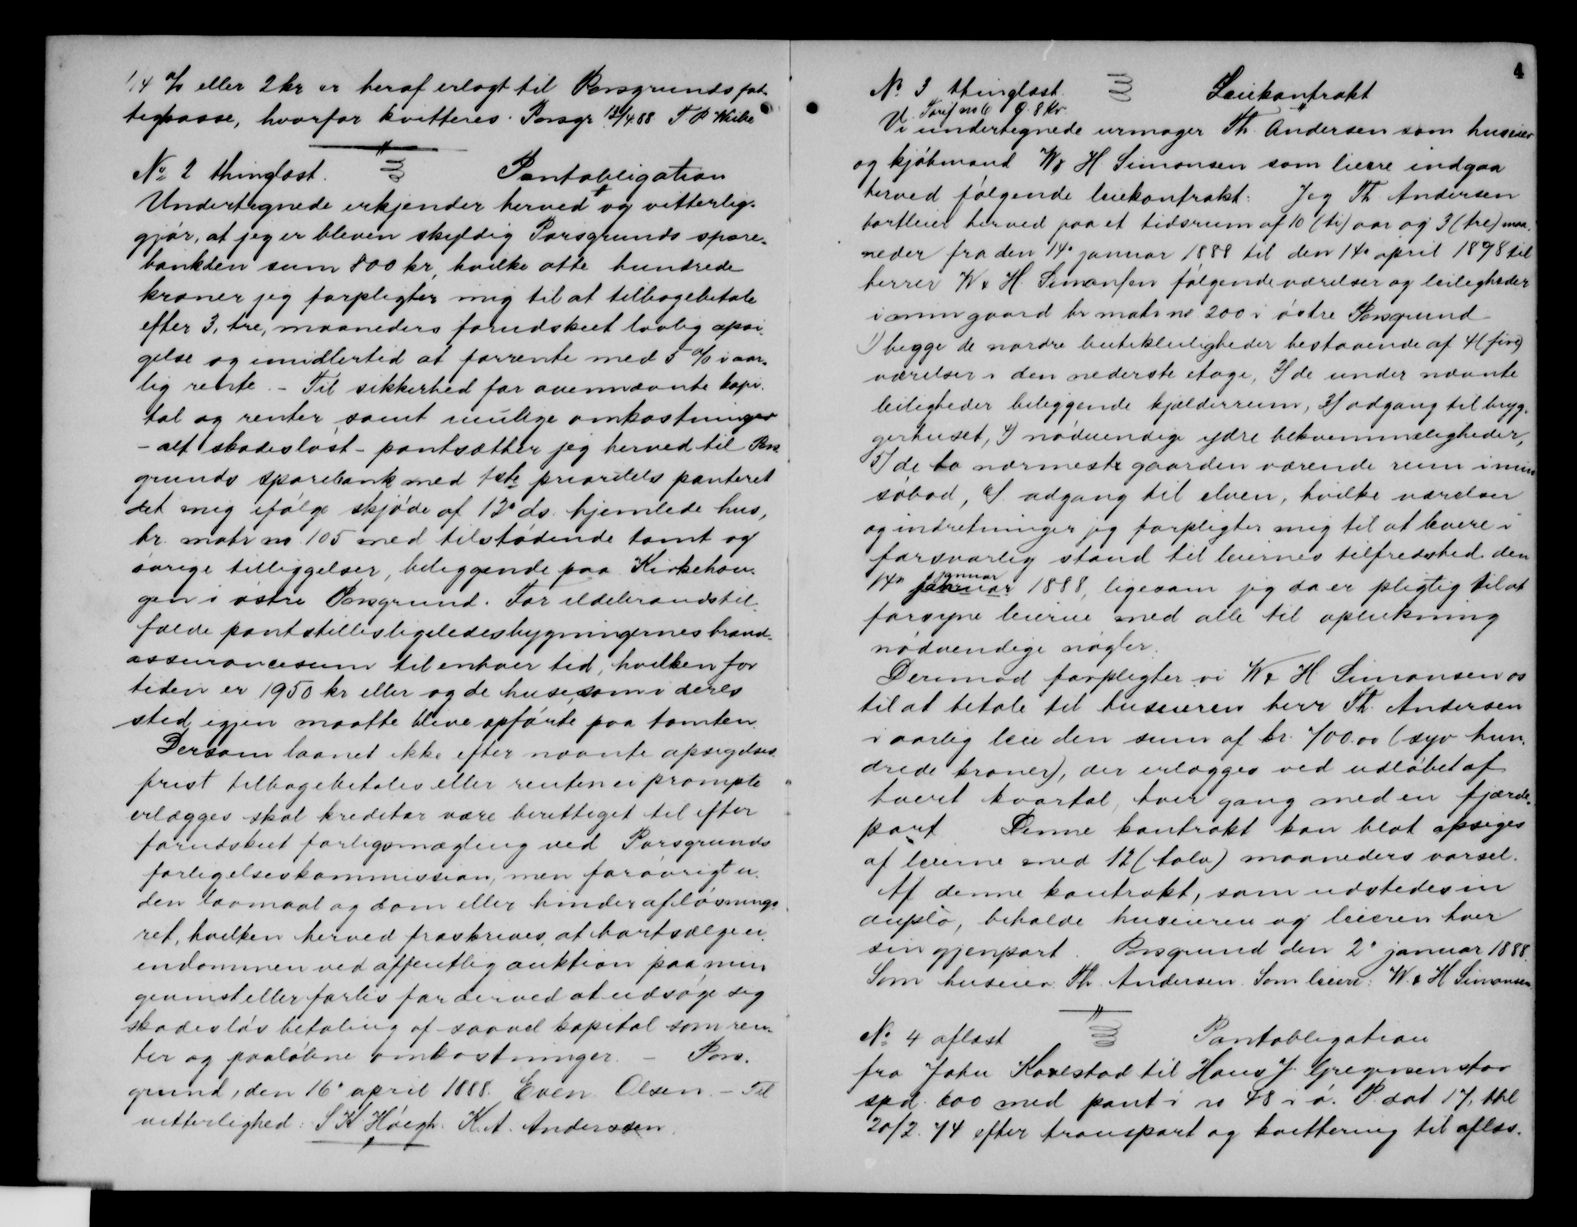 1/4 % eller 2 kr er heraf erlagt til Porsgrunds fat-
tigkasse, hvorfor kvitteres. Porsgr 18/4 88 T P Wiibe
No 2 thinglæst. Pantobligation
Undertegnede erkjender herved og vitterlig-
gjør, at jeg er bleven skyldig Porsgrunds spare-
bank den sum 800 kr, hvilke otte hundrede
kroner jeg forpligter mig til at tilbagebetale
efter 3, tre, maaneders forudskeet lovlig opsi-
gelse og imidlertid at forrente med 5 % i aar-
lig rente. – Til sikkerhed for ovennævnte kapi-
tal og renter samt mulige omkostninger
– alt skadesløst – pantsætter jeg herved til Pors
grunds sparebank med 1ste prioritets panteret
det mig ifølge skjøde af 12' ds. hjemlede hus,
br. matr no 105 med tilstødende tomt og
øvrige tilliggelser, beliggende paa Kirkehau-
gen i østre Porsgrund. For ildebrandstil-
fælde pantstilles ligeledes bygningernes brand-
assurancesum til enhver tid, hvilken for
tiden er 1950 kr eller og de huse, som i deres
sted igjen maatte blive opførte paa tomten.
Dersom laanet ikke efter nævnte opsigelses
frist tilbagebetales eller renten ei prompte
erlægges skal kreditor være berettiget til efter
forudskeet forligsmægling ved Porsgrunds
forligelseskommission, men forøvrigt u-
den lovmaal og dom eller hinder af løsnings-
ret, hvilken herved fraskrives, at bortsælge ei-
endommen ved offentlig auktion paa min
gevinst eller forlis for derved at udsøge sig
skadesløs betaling af saavel kapital som ren-
ter og paaløbne omkostninger. – Pors-
grund, den 16' april 1888. Even Olsen. – Til
vitterlighed: S H Höegh. K. A. Anderssen.
4
No 3 thinglæst. Leiekontrakt
Tarif no 6 G. 8 kr.
Vi undertegnede urmager Th. Andersen som huseier
og kjøbmænd W & H Simonsen som leiere indgaa
herved følgende leiekontrakt: Jeg Th. Andersen
bortleier herved paa et tidsrum af 10 (ti) aar og 3 (tre) maa-
neder fra den 14' januar 1888 til den 14' april 1898 til
herrer W & H Simonsen følgende værelser og leiligheder
i min gaard br matr no 200 i østre Porsgrund
1) begge de nordre butikleiligheder bestaaende af 4 (fire)
værelser i den nederste etage, 2) de under nævnte
leiligheder beliggende kjælderrum, 3) adgang til bryg-
gerhuset, 4) nødvendige ydre bekvemmeligheder,
5) de to nærmest gaarden værende rum i min
søbod, 6) adgang til elven, hvilke værelser
og indretninger jeg forpligter mig til at levere i
forsvarlig stand til leiernes tilfredshed den
14' januar 1888, ligesom jeg da er pligtig til at
forsyne leierne med alle til oplukning
nødvendige nøgler.
Derimod forpligter vi W & H Simonsen os
til at betale til huseieren herr Th. Andersen
i aarlig leie den sum af kr. 700.00 (syv hun-
drede kroner), der erlægges ved udløbet af
hvert kvartal, hver gang med en fjerde-
part. Denne kontrakt kan blot opsiges
af leierne med 12 (tolv) maaneders varsel.
Af denne kontrakt, som udstedes in
duplo, beholde huseieren og leieren hver
sin gjenpart. Porsgrund den 2' januar 1888.
Som huseier: Th. Andersen. Som leiere: W. & H Simonsen.
No 4 aflæst Pantobligation
fra John Karlstad til Hans J. Gregersen stor
spd. 600 med pant i no 48 i ø. P. dat 17, thl
20/2 74 efter transport og kvittering til aflæs.